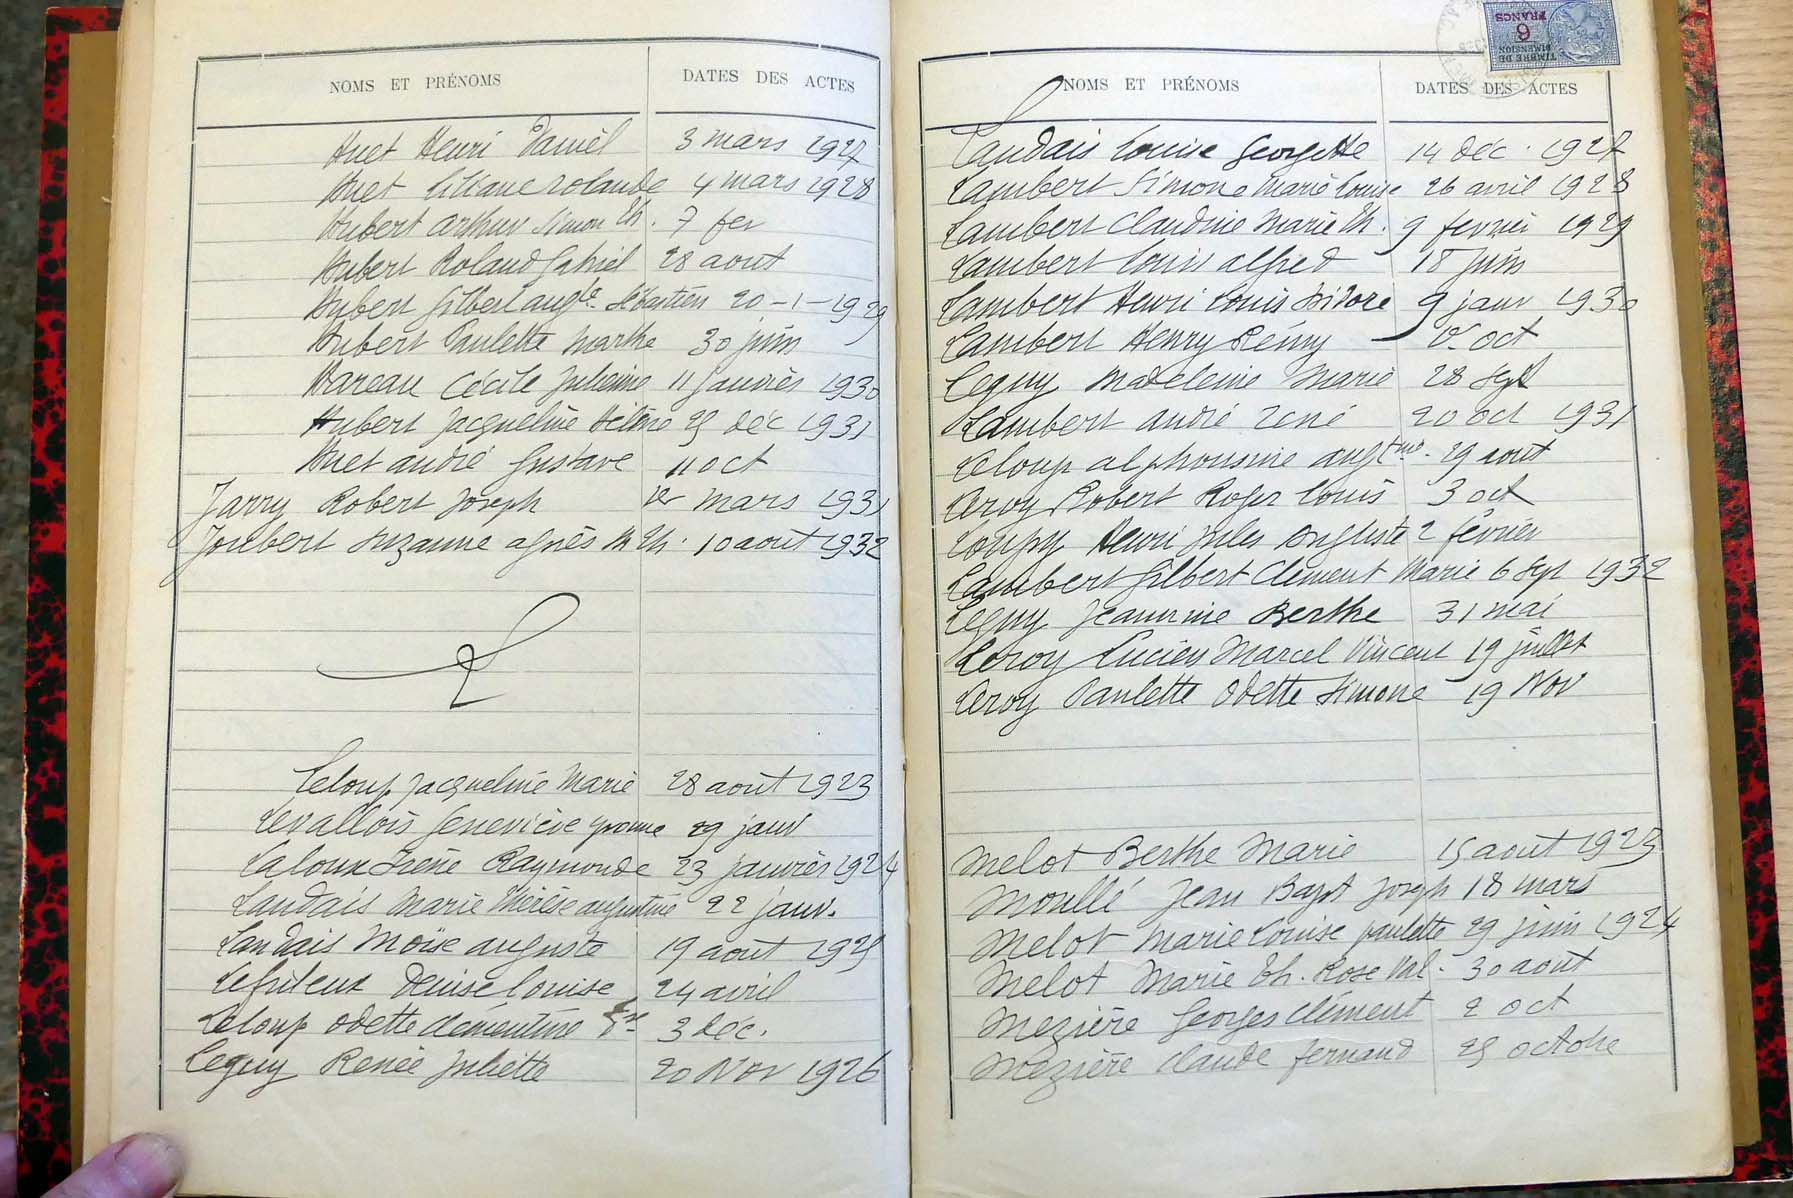 NOMS ET PRÉNOMS DATES DES ACTES
Huet Henri Daniel 3 mars 1927
Huet Liliane Rolande 4 mars 1928
Hubert Arthur Simon Th. 7 fev
Hubert Roland Gabriel 28 aout
Hubert Gilbert Augte Sébastien 20-1-1929
Hubert Paulette Marthe 30 juin
Hareau Cécile Julienne 11 janvier 1930
Hubert Jacqueline Hélène 25 déc 1931
Huet André Gustave 11 oct
Jarry Robert Joseph 1er mars 1931
Joubert Suzanne Agnès M Th. 10 août 1932
Leloup Jacqueline Marie 28 août 1923
Levallois Geneviève Yvonne 29 janv
Laloux Irène Raymonde 23 janvier 1924
Landais Marie Thérèse Augustine 22 janv.
Landais Moïse Auguste 19 août 1925
Denise Louise 24 avril
Leloup Odette Clémentine 3 déc.
Leguy Renée Juliette 20 Nov 1926
TIMBRE DE DIMENSION
6 FRANCS
NOMS ET PRÉNOMS DATES DES ACTES
Landais Louise Georgette 14 déc. 1927
Lambert Simone Marie Louise 26 avril 1928
Lambert Claudine Marie Th. 9 fevrier 1929
Lambert Louis Alfred 18 juin
Lambert Henri Louis Isidore 9 janv 1930
Lambert Henry Rémy oct
Leguy Madeleine Marie 28 Sept
Lambert André René 20 oct 1931
Leloup Alphonsine Augtine. 29 aout
Leroy Robert Roger Louis 3 oct
Loupy Henri Jules Auguste 2 février
Lambert Gilbert Clément Marie 6 Sept 1932
Leguy Jeannine Berthe 31 mai
Leroy Lucien Marcel Vincent 19 juillet
Leroy Paulette Odette Simone 19 Nov
Melot Berthe Marie 15 aout 1923
Moullé Jean Bapt Joseph 18 mars
Melot Marie Louise Paulette 29 juin 1924
Melot Marie Th. Rose Val. 30 août
Mezière Georges Clément 2 oct
Mezière Claude Fernand 25 octobre